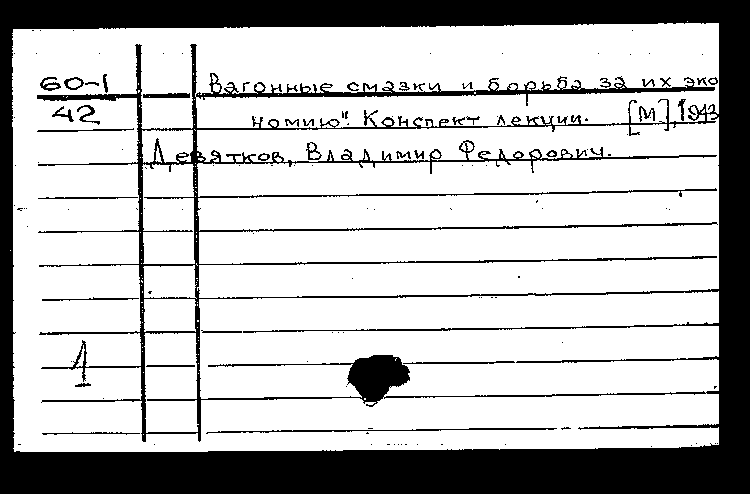 60-1 Вагонные смазки и борьба за их эко
42 номию". Конспект лекции. [М], 1943
Девятков, Владимир Федорович.
1